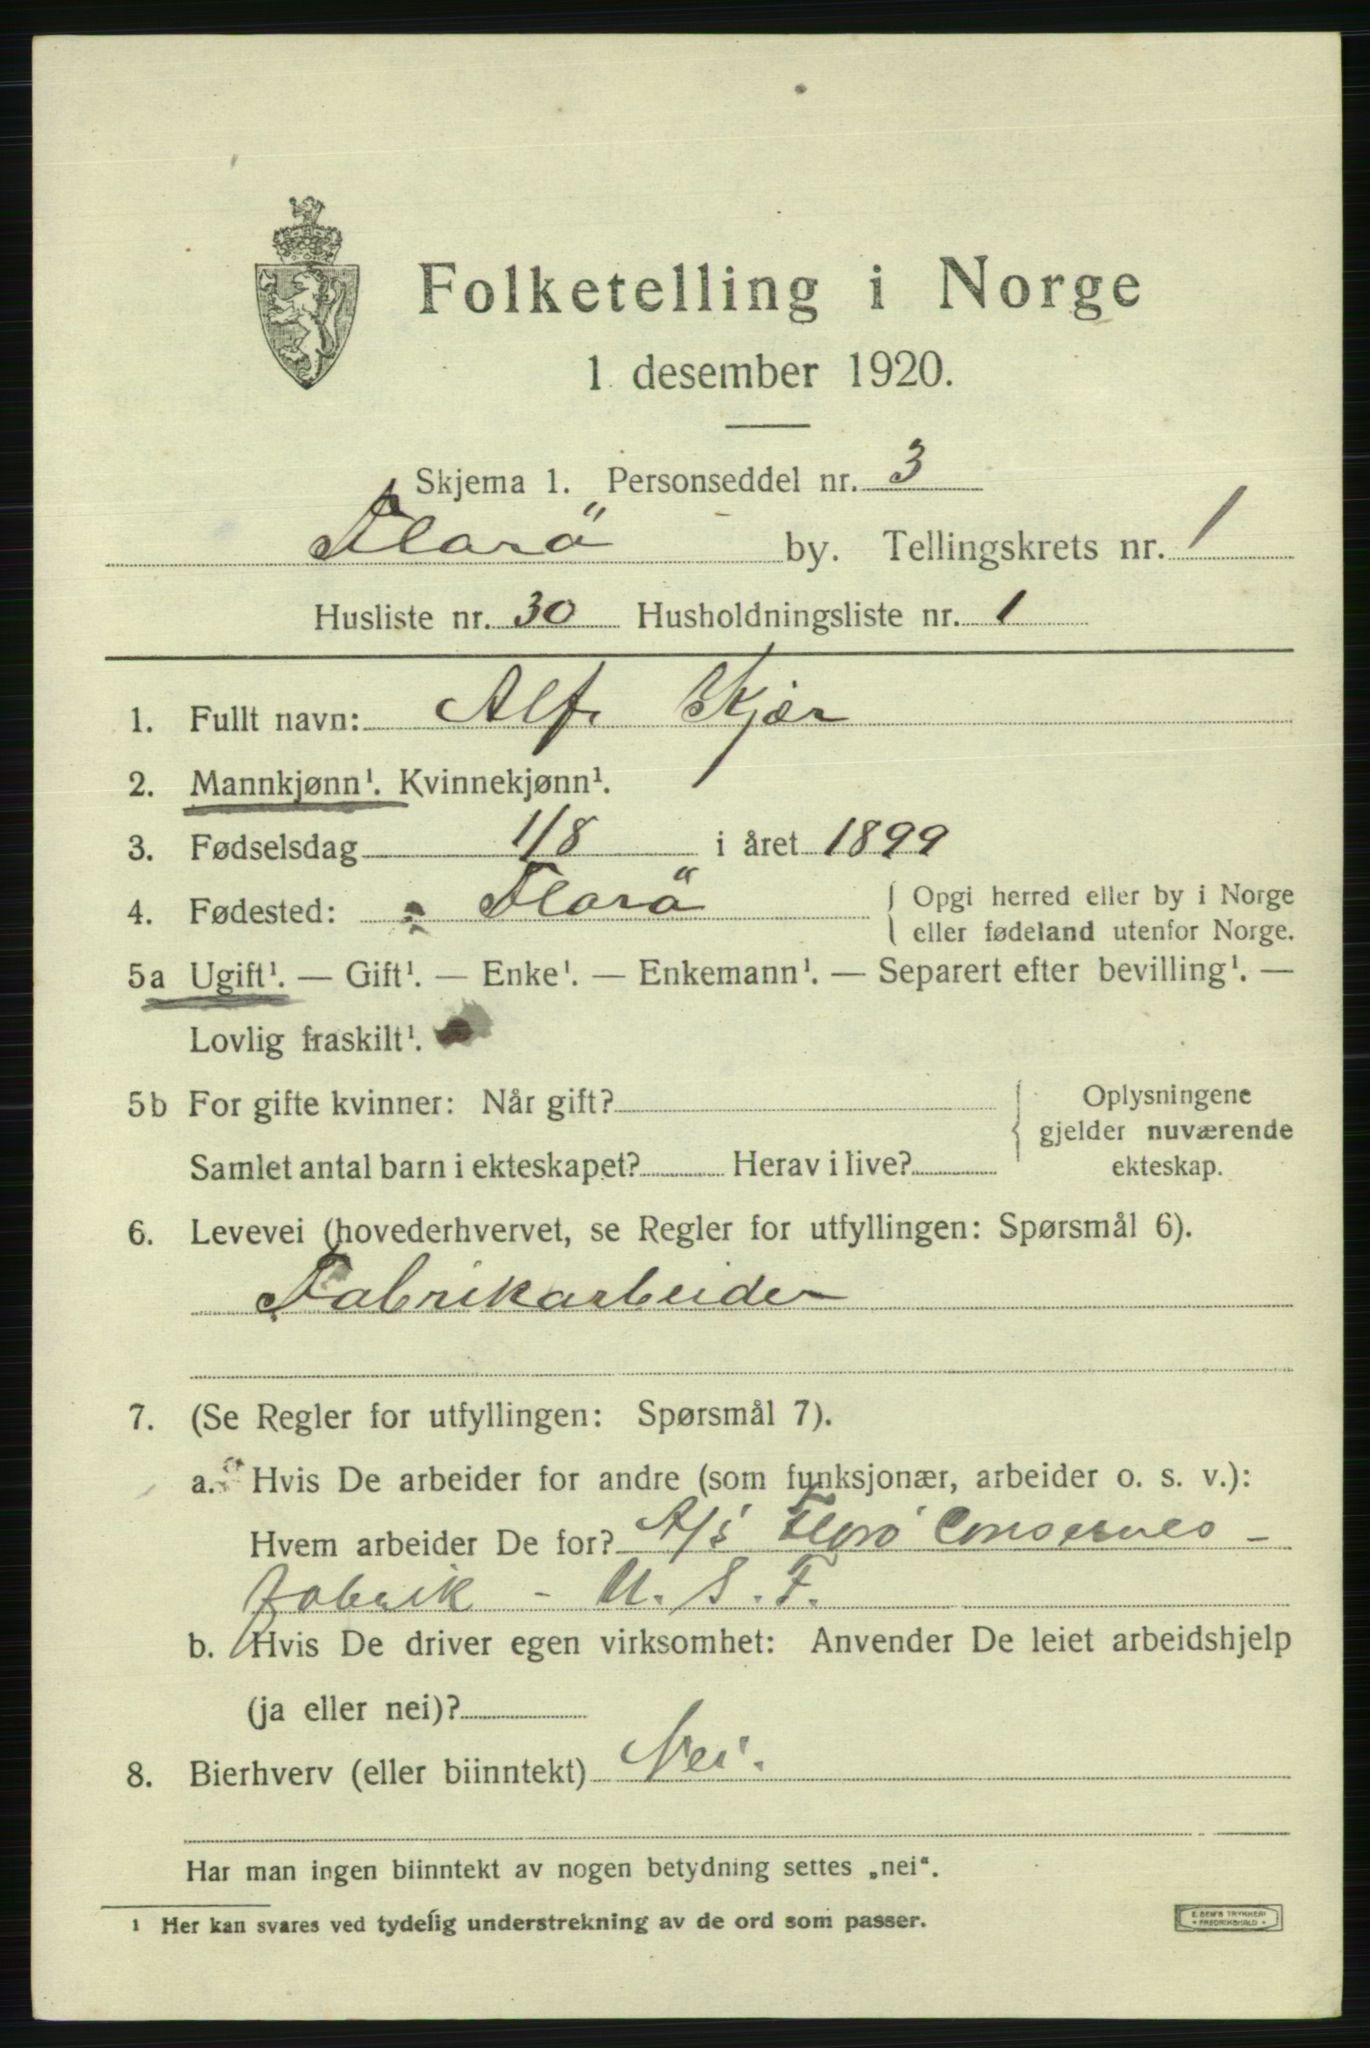 Folketelling i Norge
1. desember 1920.
Skjema 1. Personseddel nr. 3
Florö by. Tellingskrets nr. 1
Husliste nr. 30 Husholdningsliste nr. 1
1. Fullt navn: Alf Kjær
2. Mannkjønn¹. Kvinnekjønn¹.
3. Fødselsdag 1/8 i året 1899
4. Fødested: Florö { Opgi herred eller by i Norge
eller fødeland utenfor Norge.
5a Ugift¹. — Gift¹. — Enke¹. — Enkemann¹. — Separert efter bevilling¹. —
Lovlig fraskilt¹.
5b For gifte kvinner: Når gift? { Oplysningene
gjelder nuværende
Samlet antal barn i ekteskapet? Herav i live? ekteskap.
6. Levevei (hovederhvervet, se Regler for utfyllingen: Spørsmål 6).
Fabrikarbeider
7. (Se Regler for utfyllingen: Spørsmål 7).
a. Hvis De arbeider for andre (som funksjonær, arbeider o. s. v.):
Hvem arbeider De for? A/s Florö Conserves-
fabrik - U. S. F.
b. Hvis De driver egen virksomhet: Anvender De leiet arbeidshjelp
(ja eller nei)?
8. Bierhverv (eller biinntekt) Nei.
Har man ingen biinntekt av nogen betydning settes „nei“.
1 Her kan svares ved tydelig understrekning av de ord som passer.
E. SEM'S TRYKKERI
• FREDRIKSHALD •